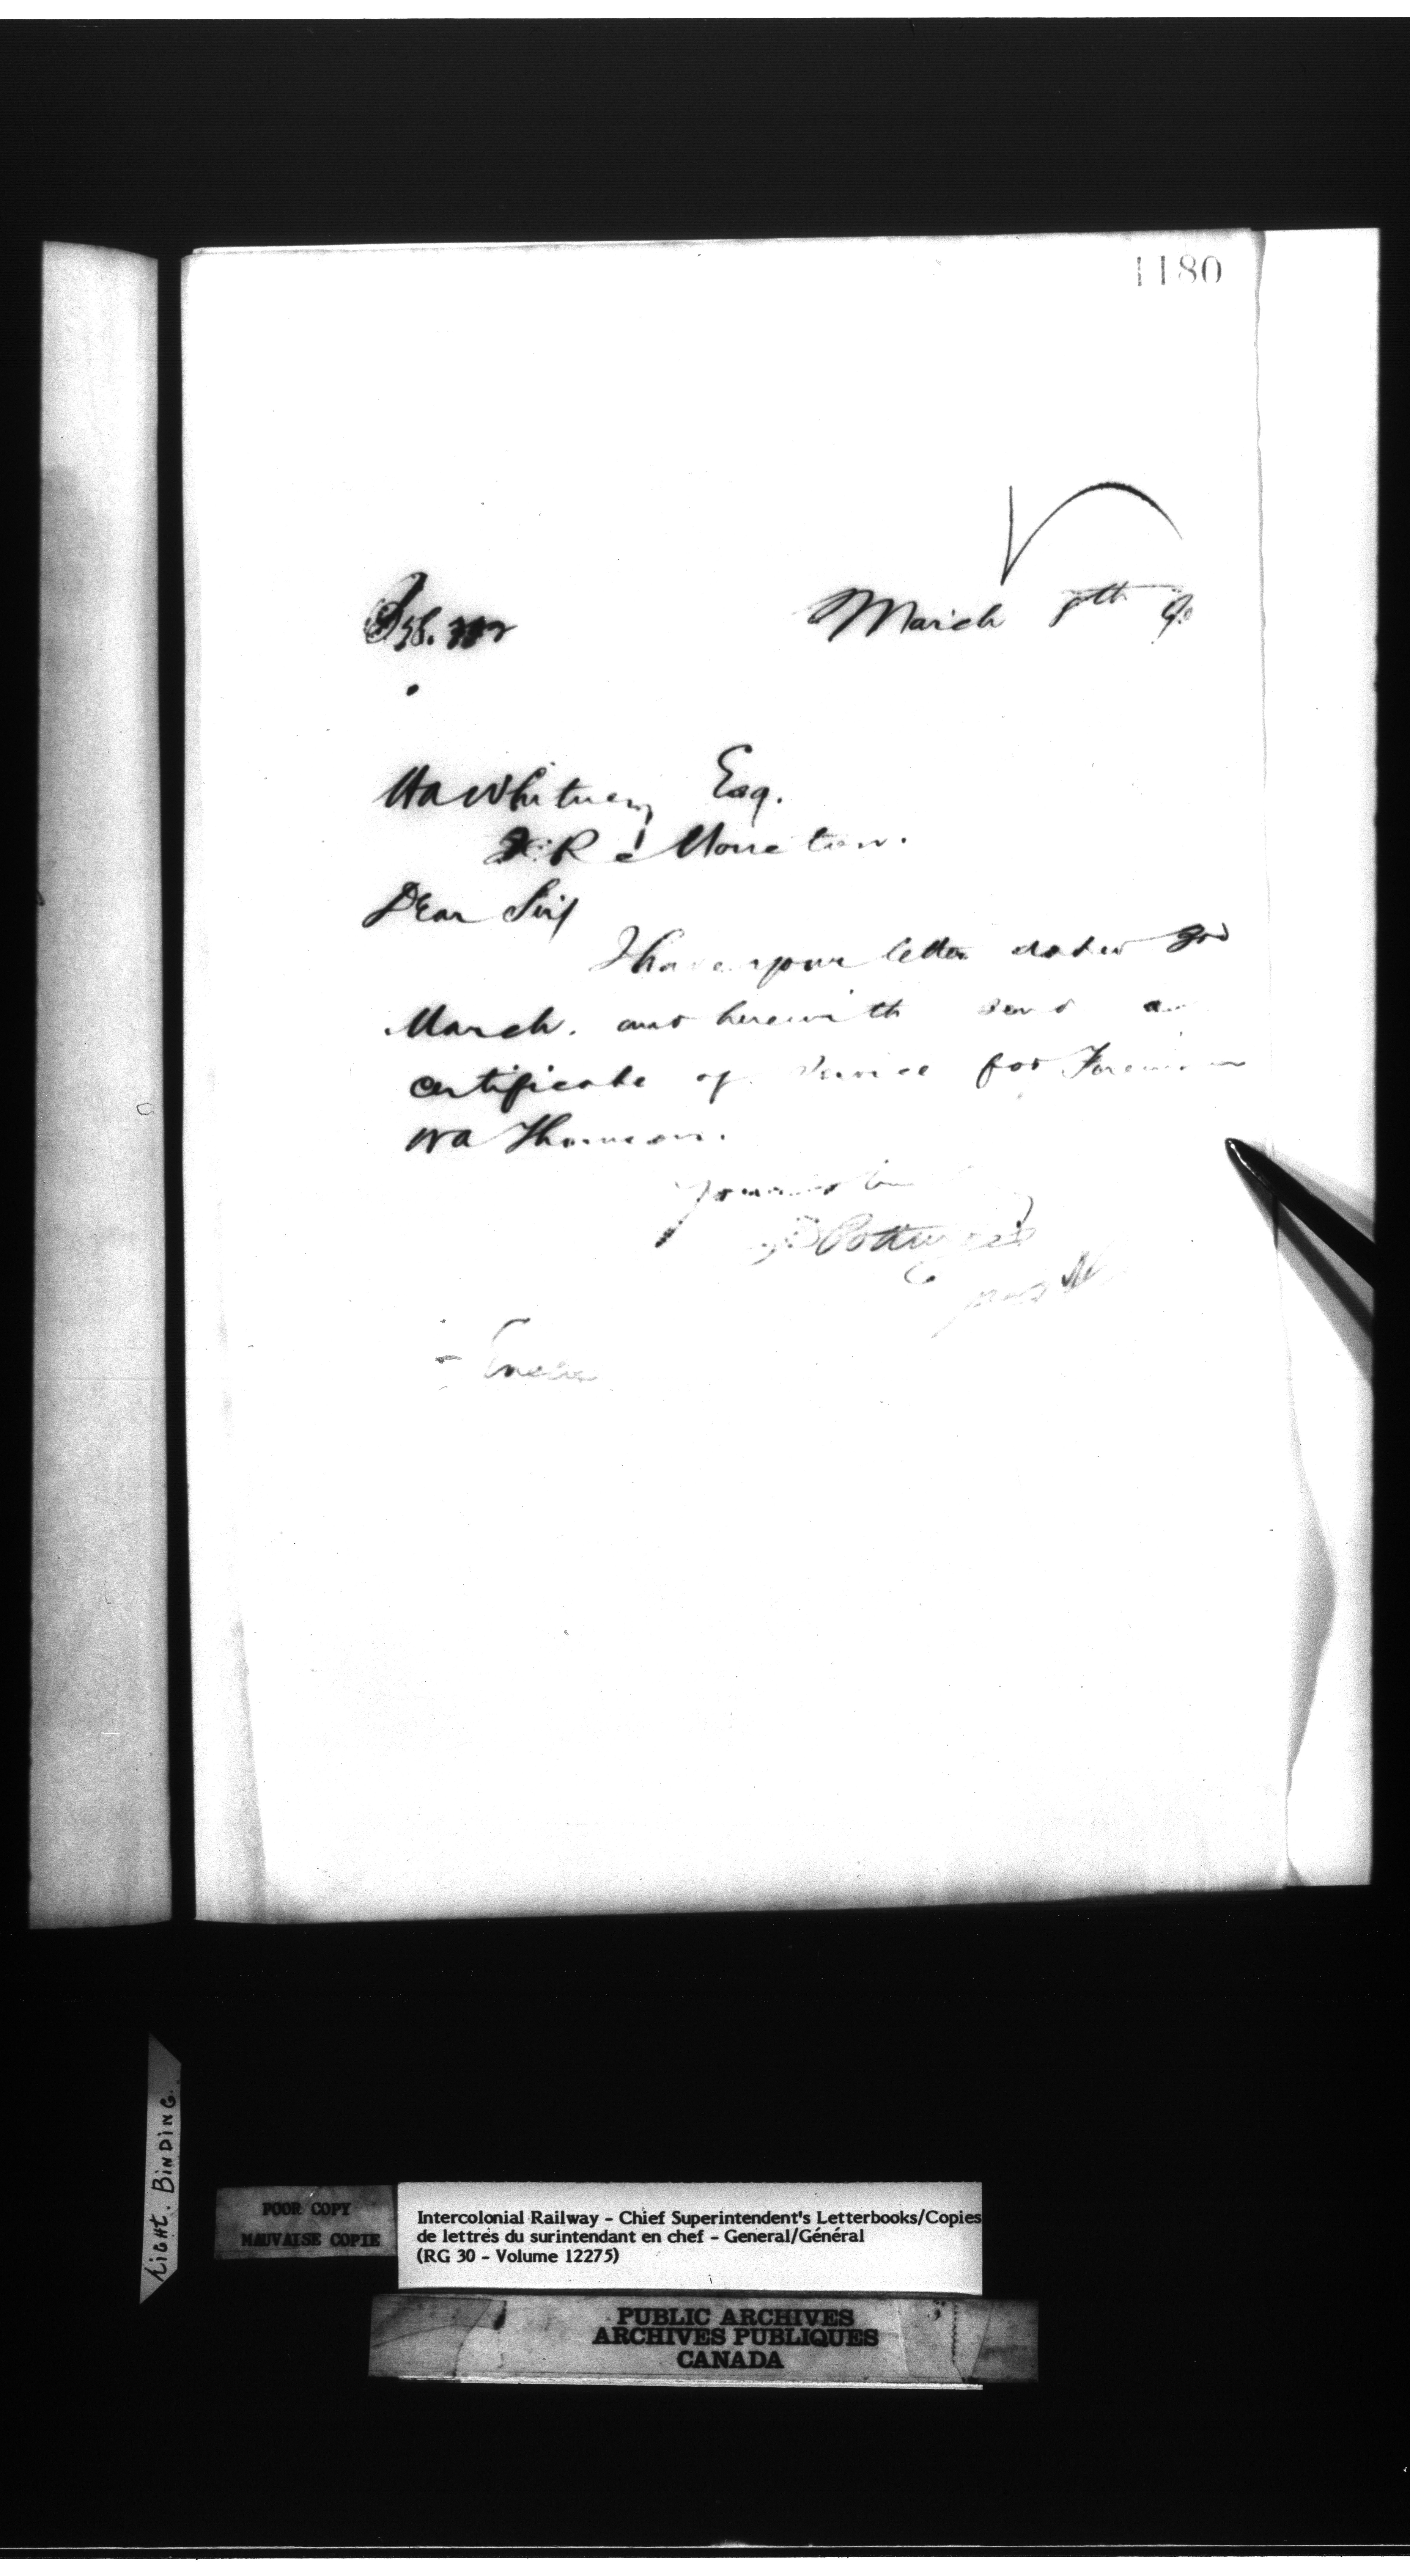 1180
March 8th 90
H A Whitney Esq.
Moncton.
Dear Sir/
I have your letter dated 3rd
March. and herewith send a
certificate of service for Foreman
W A Thomson.
Yours
Pottinger
Enclo
Tight. BINDING.
POOR COPY
MAUVAISE COPIE
Intercolonial Railway - Chief Superintendent's Letterbooks/Copies
de lettres du surintendant en chef - General/Général
(RG 30 - Volume 12275)
PUBLIC ARCHIVES
ARCHIVES PUBLIQUES
CANADA